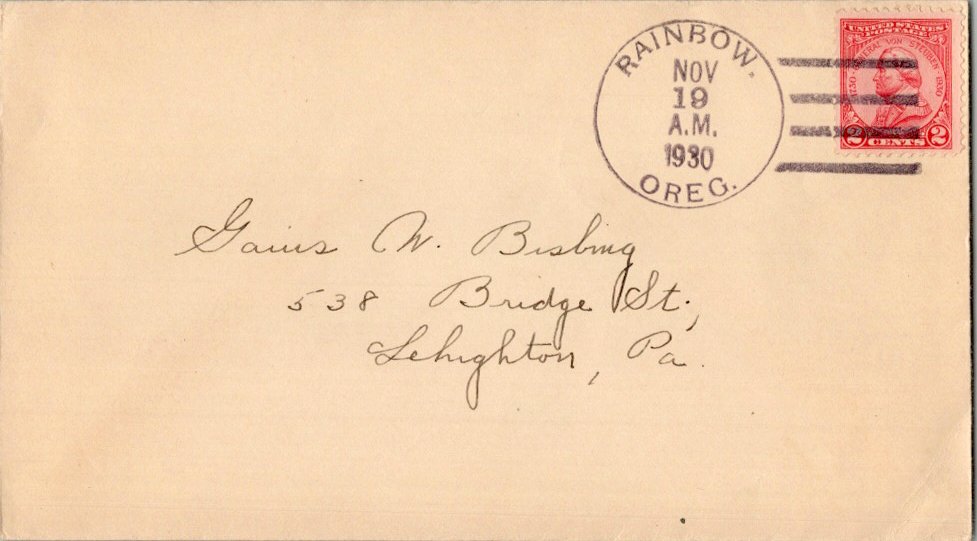 RAINBOW.
NOV
19
A.M.
1930
OREG.
UNITED STATES
POSTAGE
GENERAL VON STEUBEN
1730
1930
2 CENTS 2
Gaius W. Bisbing
538 Bridge St.,
Lehighton, Pa.